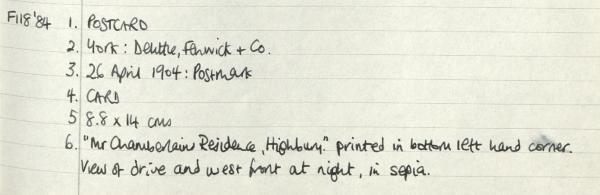 F118'84 1. POSTCARD
2. York: Delittle, Fenwick + Co.
3. 26 April 1904: Postmark
4. CARD
5 8.8 x 14 cms
6. "Mr Chamberlains Residence, Highbury." printed in bottom left hand corner.
View of drive and west front at night, in sepia.